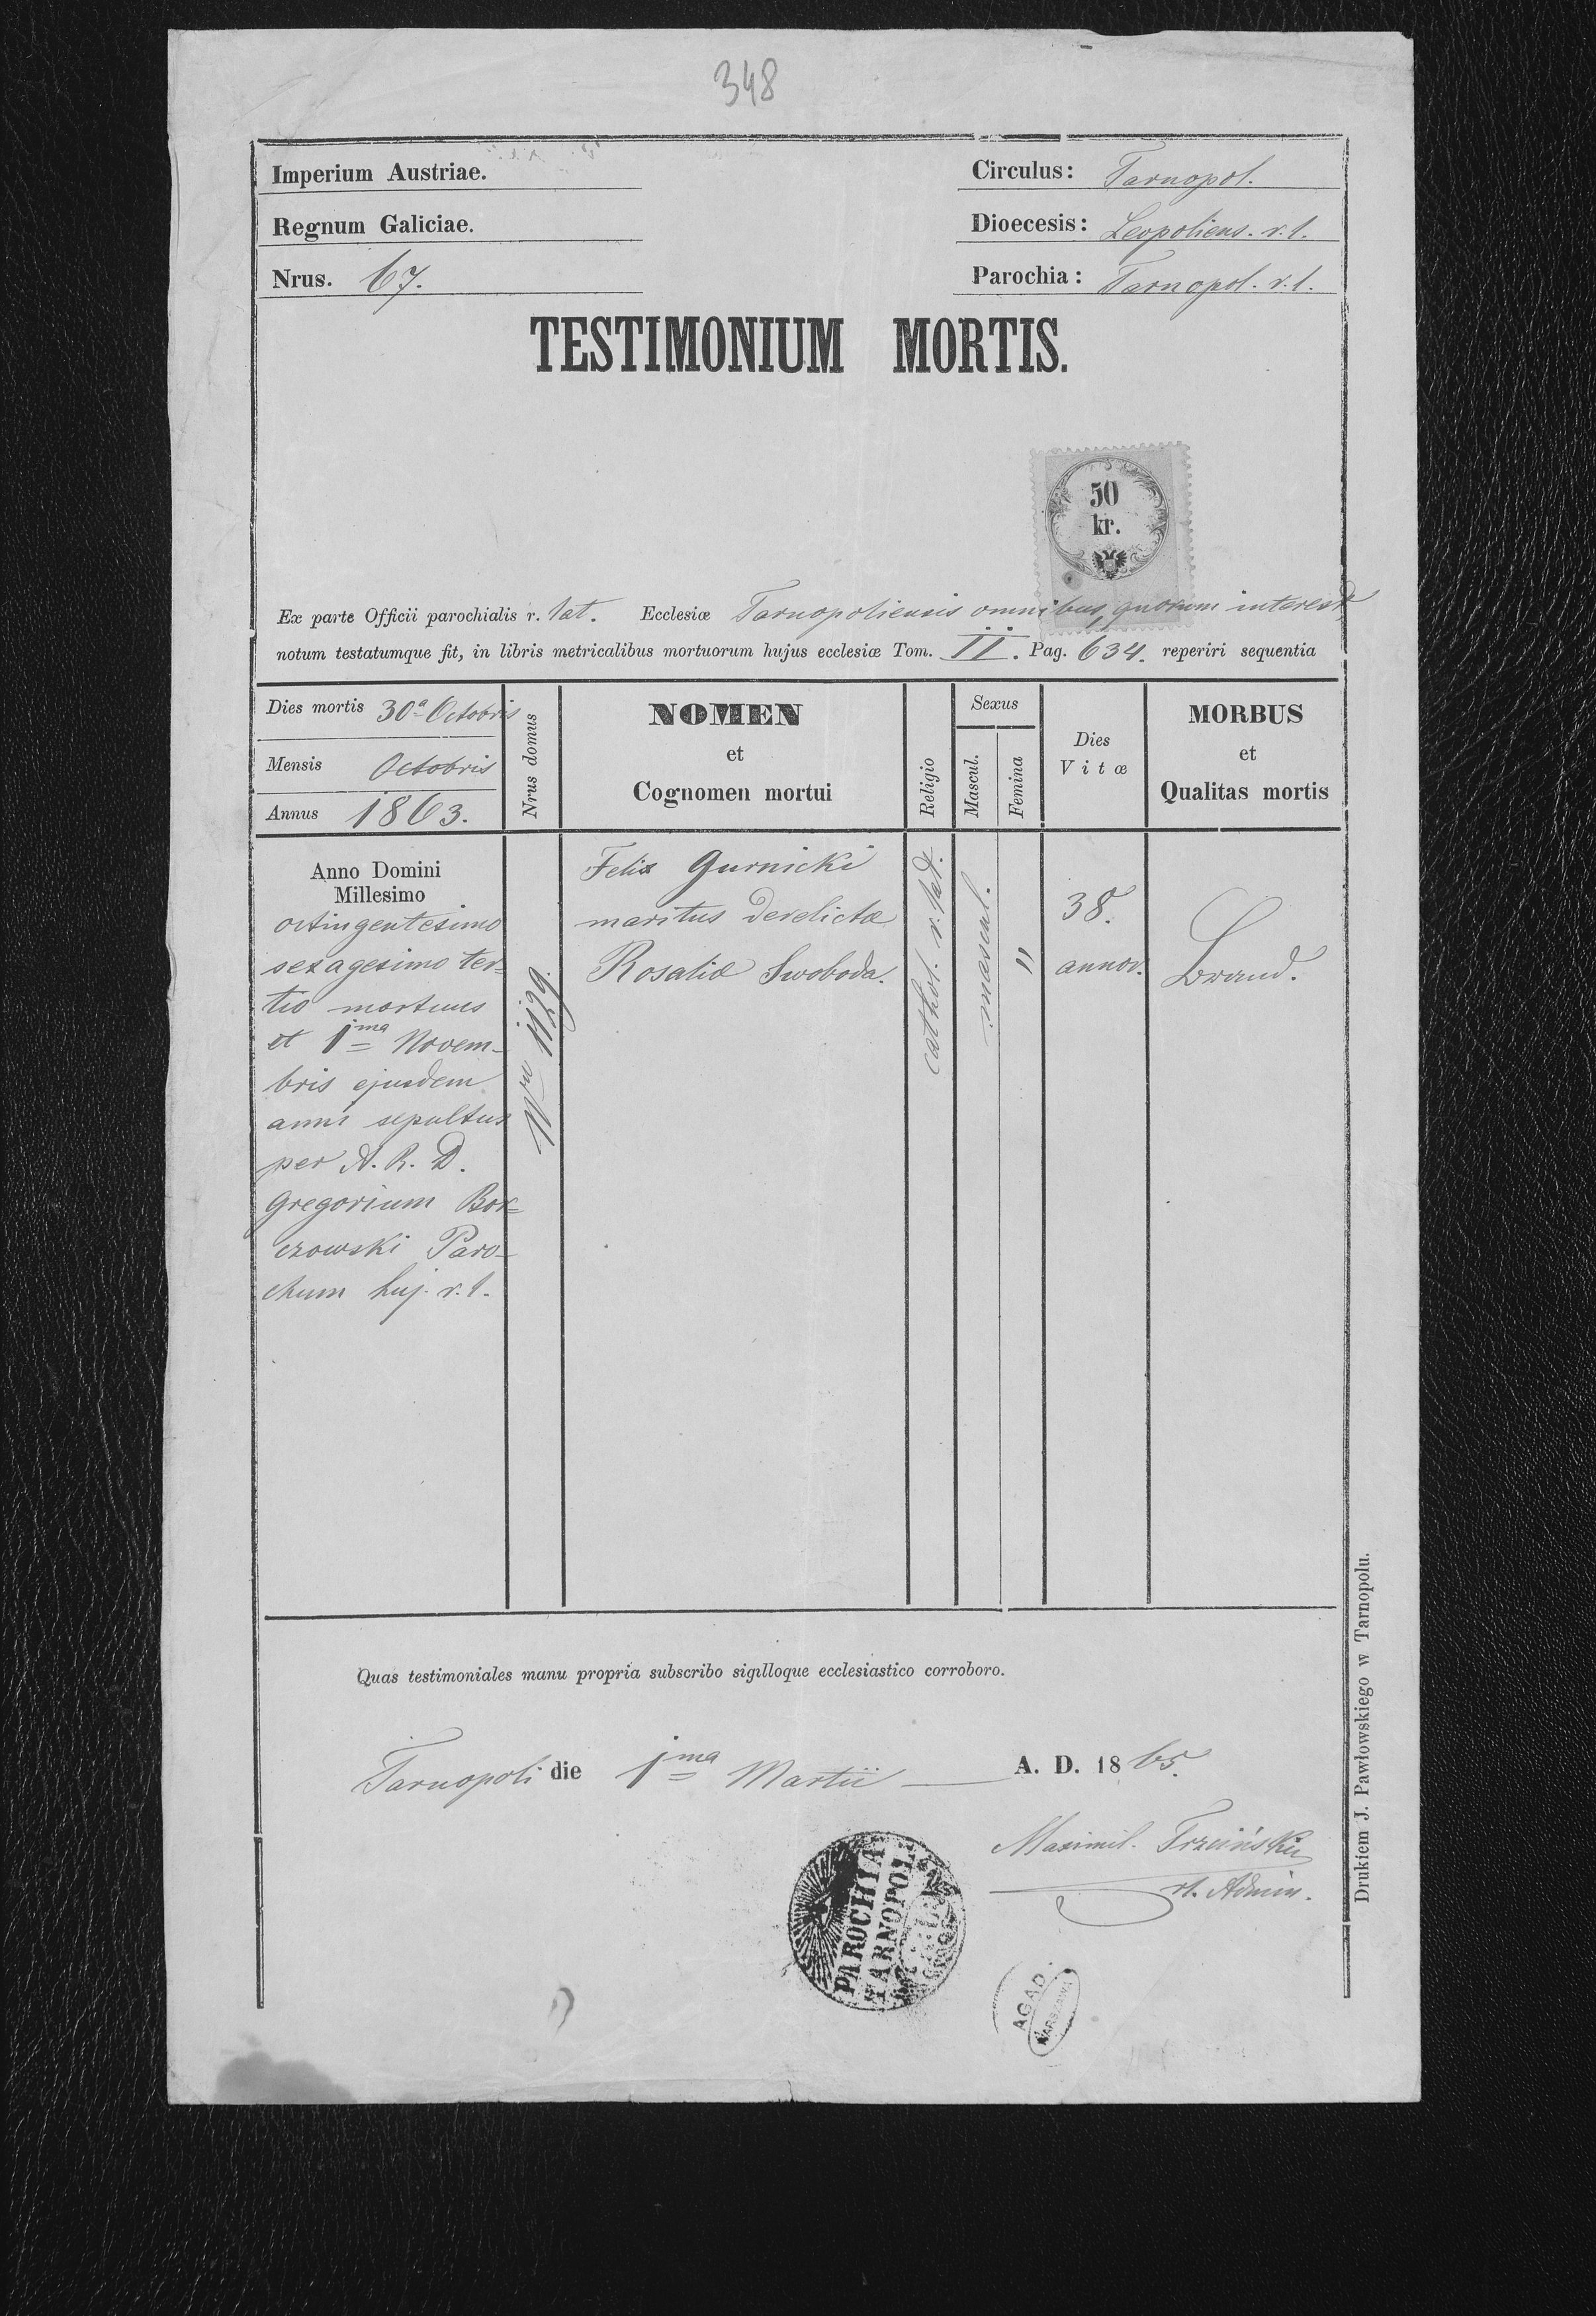 348
Imperium Austriae.
Circulus: Tarnopol.
Regnum Galiciae.
Dioecesis: Leopoliens. r. l.
Nrus. 67.
Parochia: Tarnopol. r. l.
TESTIMONIUM MORTIS.
50
kr.
Ex parte Officii parochialis r. lat. Ecclesiæ Tarnopoliensis omnibus, quorum interest,
notum testatumque fit, in libris metricalibus mortuorum hujus ecclesiæ Tom. II. Pag. 634. reperiri sequentia
Dies mortis 30ª Octobris
Mensis Octobris
Annus 1863.
Nrus domus
NOMEN
et
Cognomen mortui
Religio
Sexus
Mascul.
Femina
Dies
Vitæ
MORBUS
et
Qualitas mortis
Anno Domini
Millesimo
octingentesimo
sexagesimo ter-
tio mortuus
et 1ma Novem-
bris ejusdem
anni sepultus
per A. R. D.
Gregorium Bor-
czowski Paro-
chum huj. r. l.
Nru 1129.
Felix Gurnicki
maritus derelictæ
Rosaliæ Swoboda.
cathol. r. lat.
mascul.
"
38.
annor.
Brand.
Quas testimoniales manu propria subscribo sigilloque ecclesiastico corroboro.
Tarnopoli die 1ma Martii — A. D. 1865.
Maximil. Trzciński
rl. Admin.
PAROCHIA
TARNOPOL
AGAD
WARSZAWA
Drukiem J. Pawłowskiego w Tarnopolu.